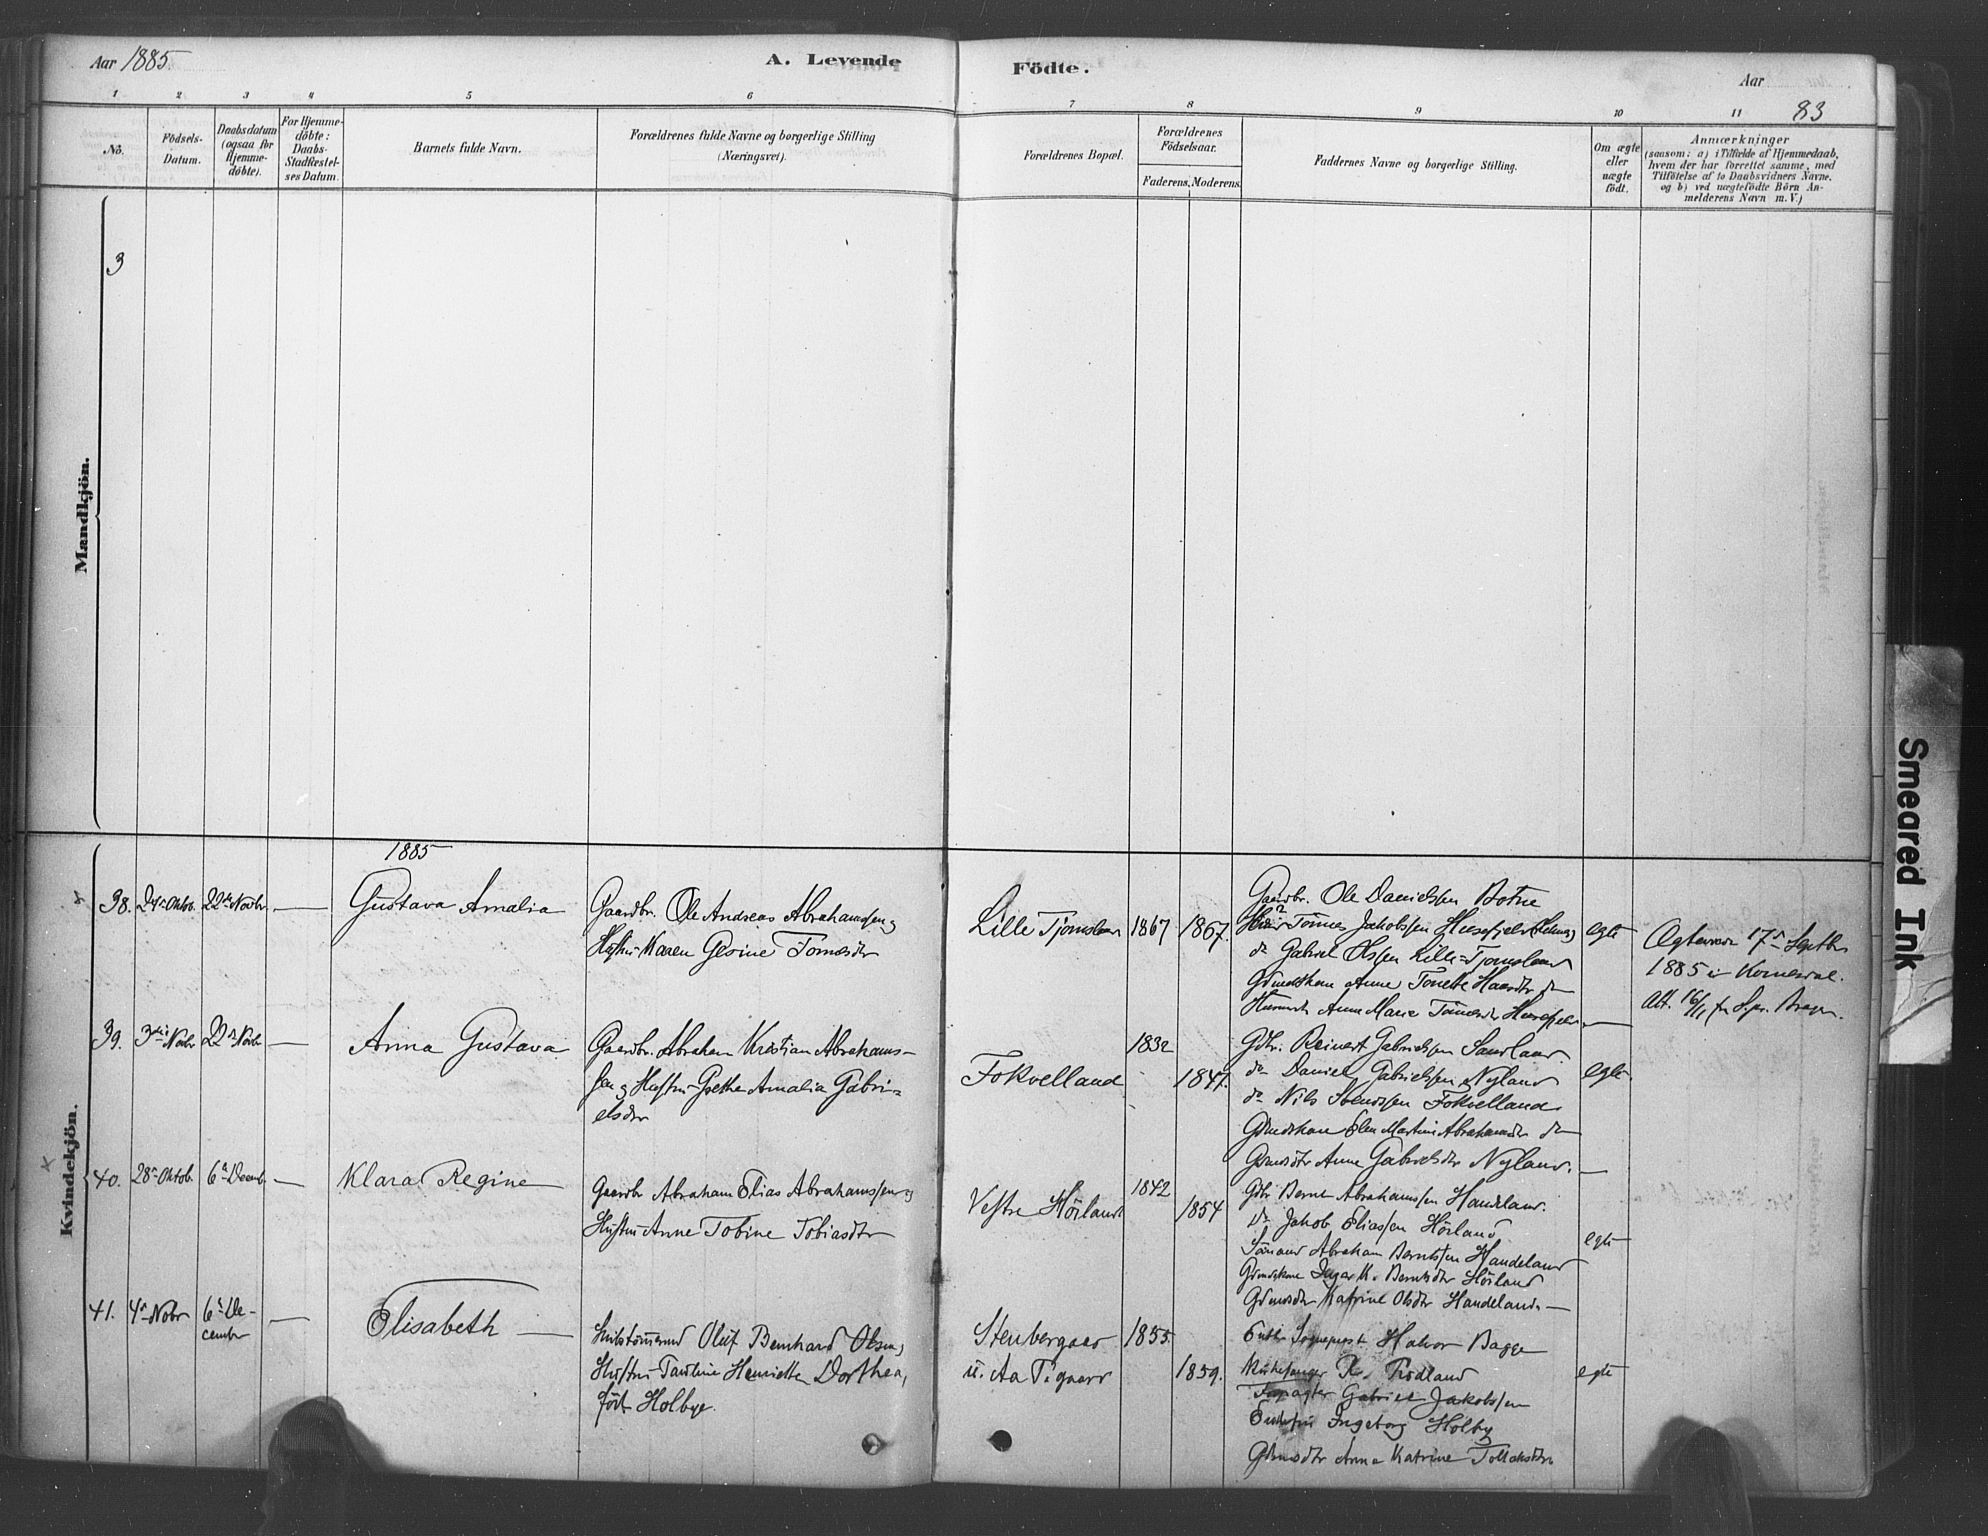 Aar 1885.
A. Levende
Födte.
Aar
83
1 2 3 4 5 6 7 8 9 10 11
No.
Födsels-
Datum.
Daabsdatum
(ogsaa for
Hjemme-
döbte).
For Hjemme-
döbte:
Daabs-
Stadfæstel-
ses Datum.
Barnets fulde Navn.
Forældrenes fulde Navne og borgerlige Stilling
(Næringsvei).
Forældrenes Bopæl.
Forældrenes
Födselsaar.
Faderens. Moderens.
Faddernes Navne og borgerlige Stilling.
Om ægte
eller
uægte
födt.
Anmærkninger
(saasom: a) i Tilfælde af Hjemmedaab,
hvem der har forrettet samme, med
Tilföielse af to Daabsvidners Navne,
og b) ved uægtefödte Börn An-
melderens Navn m. V.)
Mandkjön.
3
Kvindekjön.
1885
38.
22de Novbr
Gustava Amalia
Gaardbr. Ole Andreas Abrahamsen og
Hustru Maren Gesine Tomasdtr
Lille Tjomsland
1867
1867.
Gaardbr. Ole Danielsen Botne
Tönnes Jakobssen
do Gabriel Olssen Lille-Tjomsland
Anne Tonette
Anne Marie
egte
17de Septbr
1885 i
39.
3die Novbr
22de Novbr
Anna Gustava
Gaardbr. Abraham Kristian Abrahams-
sen og Hustru Grethe Amalia Gabri-
elsdtr
Fokvelland
1832
1847.
Gdbr. Reinert Gabrielssen Sandland
do Daniel Gabrielssen Nyland
do Nils Svendssen Fokvelland
Gdmdskone Elen Martine Abrahamsdtr do
Gdmdsdtr Anne Gabrielsdtr Nyland.
egte.
40.
28de Oktob.
6te Decemb.
Klara Regine
Gaardbr Abraham Elias Abrahamssen og
Hustru Anne Tobine Tobiasdtr
Vestre Höiland
1842
1854
Gdbr Bernt Abrahamssen Handeland.
do Jakob Eliassen Höiland
Abraham Berntssen Handeland
Gdmdskone Inger M. Berntsdtr Höiland
Gdmdsdtr Katrine Olsdtr Handeland.
egte
41.
4de Novbr
6te De-
cember
Elisabeth
Oluf Bernhard Olsen og
Hustru Pauline Henriette Dorthea,
født Holbye.
Stenbergaas
1855
1859.
Sogneprest Halvor Bagge
Kirkesanger Trodland
Gabriel Jakobssen
Ingeborg Holby
Gdmdsdtr Anna Katrine Tollaksdtr.
egte
Smeared Ink